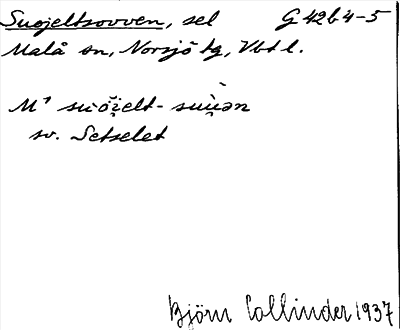 Suojeltsovven, sel G 42 b 4-5
Malå sn, Norsjö tg, Vbtl.
sv. Setselet
Björn Collinder 1937